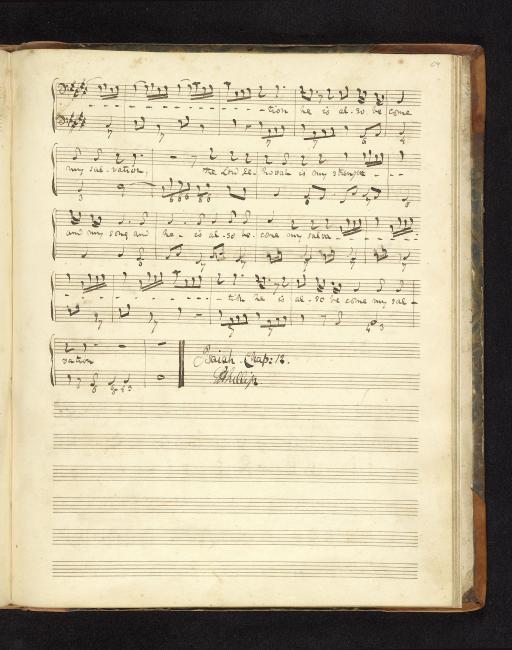 - - - - - - - - - - tion he is al-so be come
7 7 7 6
my sal-vation. The Lord Je-hovah is my strength - - -
and my song and he - is al-so be-come my salva - - - - - -
- - - - - - - - - - tion he is al-so be come my sal -
vation
Isaiah. Chap: 12.
Phillip